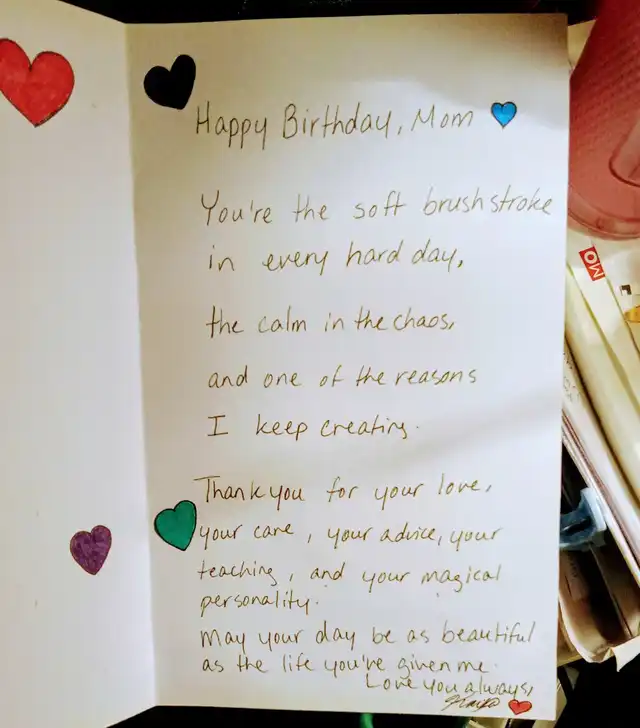 Happy Birthday, Mom
You're the soft brushstroke
in every hard day,
the calm in the chaos,
and one of the reasons
I keep creating.
Thank you for your love,
your care, your advice, your
teaching, and your magical
personality.
May your day be as beautiful
as the life you've given me.
Love you always,
MO